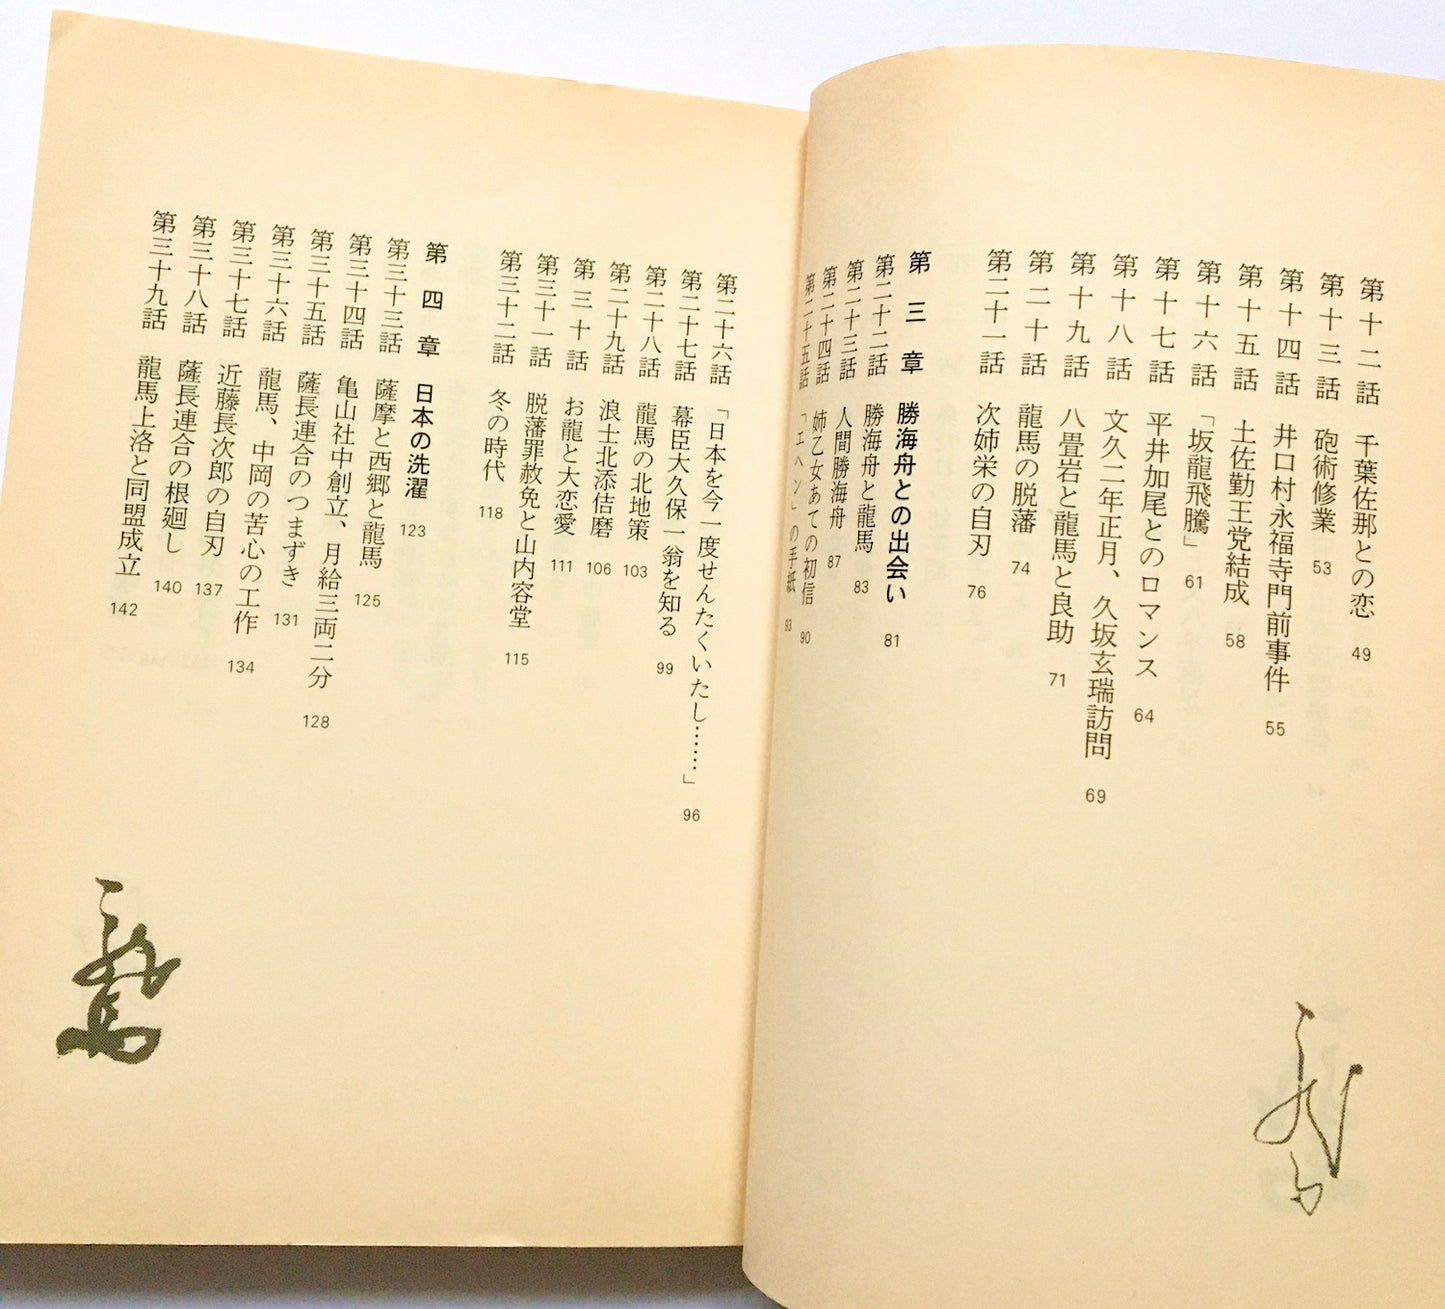 第十二話 千葉佐那との恋 49
第十三話 砲術修業 53
第十四話 井口村永福寺門前事件 55
第十五話 土佐勤王党結成 58
第十六話 「坂龍飛騰」 61
第十七話 平井加尾とのロマンス 64
第十八話 文久二年正月、久坂玄瑞訪問 69
第十九話 八畳岩と龍馬と良助 71
第二十話 龍馬の脱藩 74
第二十一話 次姉栄の自刃 76
第三章 勝海舟との出会い 81
第二十二話 勝海舟と龍馬 83
第二十三話 人間勝海舟 87
第二十四話 姉乙女あての初信 90
第二十五話 「エヘン」の手紙 93
第二十六話 「日本を今一度せんたくいたし……」 96
第二十七話 幕臣大久保一翁を知る 99
第二十八話 龍馬の北地策 103
第二十九話 浪士北添佶磨 106
第三十話 お龍と大恋愛 111
第三十一話 脱藩罪赦免と山内容堂 115
第三十二話 冬の時代 118
第四章 日本の洗濯 123
第三十三話 薩摩と西郷と龍馬 125
第三十四話 亀山社中創立、月給三両二分 128
第三十五話 薩長連合のつまずき 131
第三十六話 龍馬、中岡の苦心の工作 134
第三十七話 近藤長次郎の自刃 137
第三十八話 薩長連合の根廻し 140
第三十九話 龍馬上洛と同盟成立 142